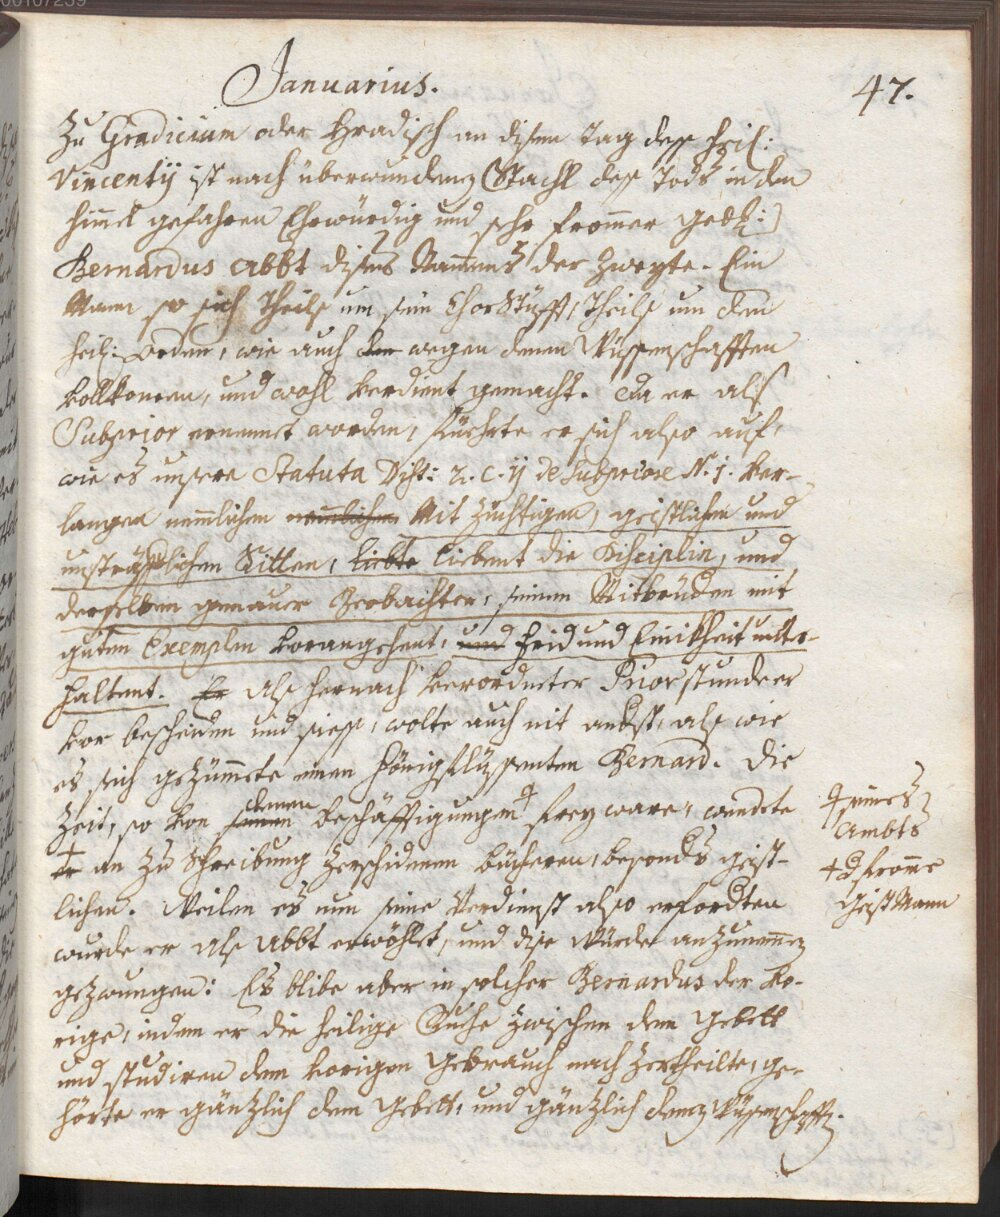 00107239
Januarius.
47.
Zu Gradicium oder Hradisch an disem Tag deß heil:
Vincentij ist nach überwundenen Stachl deß Tods in den
himel gefahren Ehrwürdig und sehr fromer
Bernardus Abbt dises Namens der Zweyte. Ein
Mann so sich Theils um sein Chor Stüfft, Theils um den
heil: Orden, wie auch den wegen denen Wüssenschafften
vollkomen, und wohl verdient gemacht. Da er als
Subprior ernennet worden, führte er sich also auf,
wie es unsere Statuta Dist: 2. C. ij de Subpriore N. 1. ver-
langen nemlichen nemlichen Mit züchtigen, geistlichen und
unsträfflichen Sitten, liebte liebent die Disciplin, und
derselben genauer Beobachter, seinen Mitbrüdern mit
guten Exemplen vorangehent, und Frid und Einikheit unter-
haltent. Er Als hernach verordneter Prior stunde er
vor bescheiden und , wolte auch nit anderst, als wie
es sich gezimmete einen Bernard. Die
Zeit, so von seinen denen Beschäfftigungen frey ware, wendete
er an zu Schreibung verschidenen Bücheren, besonders geist-
lichen. Weilen es nun seine Verdienst also erforderten
wurde er Als Abbt erwöhlet, und dise Würde anzunemen
gezwungen: Es blibe aber in solcher Bernardus der vo-
rige, indem er die heilige Ruhe zwischen dem Gebett
und studiren dem vorigen Gebrauch nach zertheilte, ge-
hörte er gäntzlich dem Gebett, und gäntzlich denen Wüssenschafften.
seines
Ambts
+ d. fromme
Geist Mann